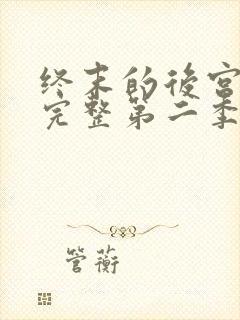 终末的後宫
完整第二季
管蘅